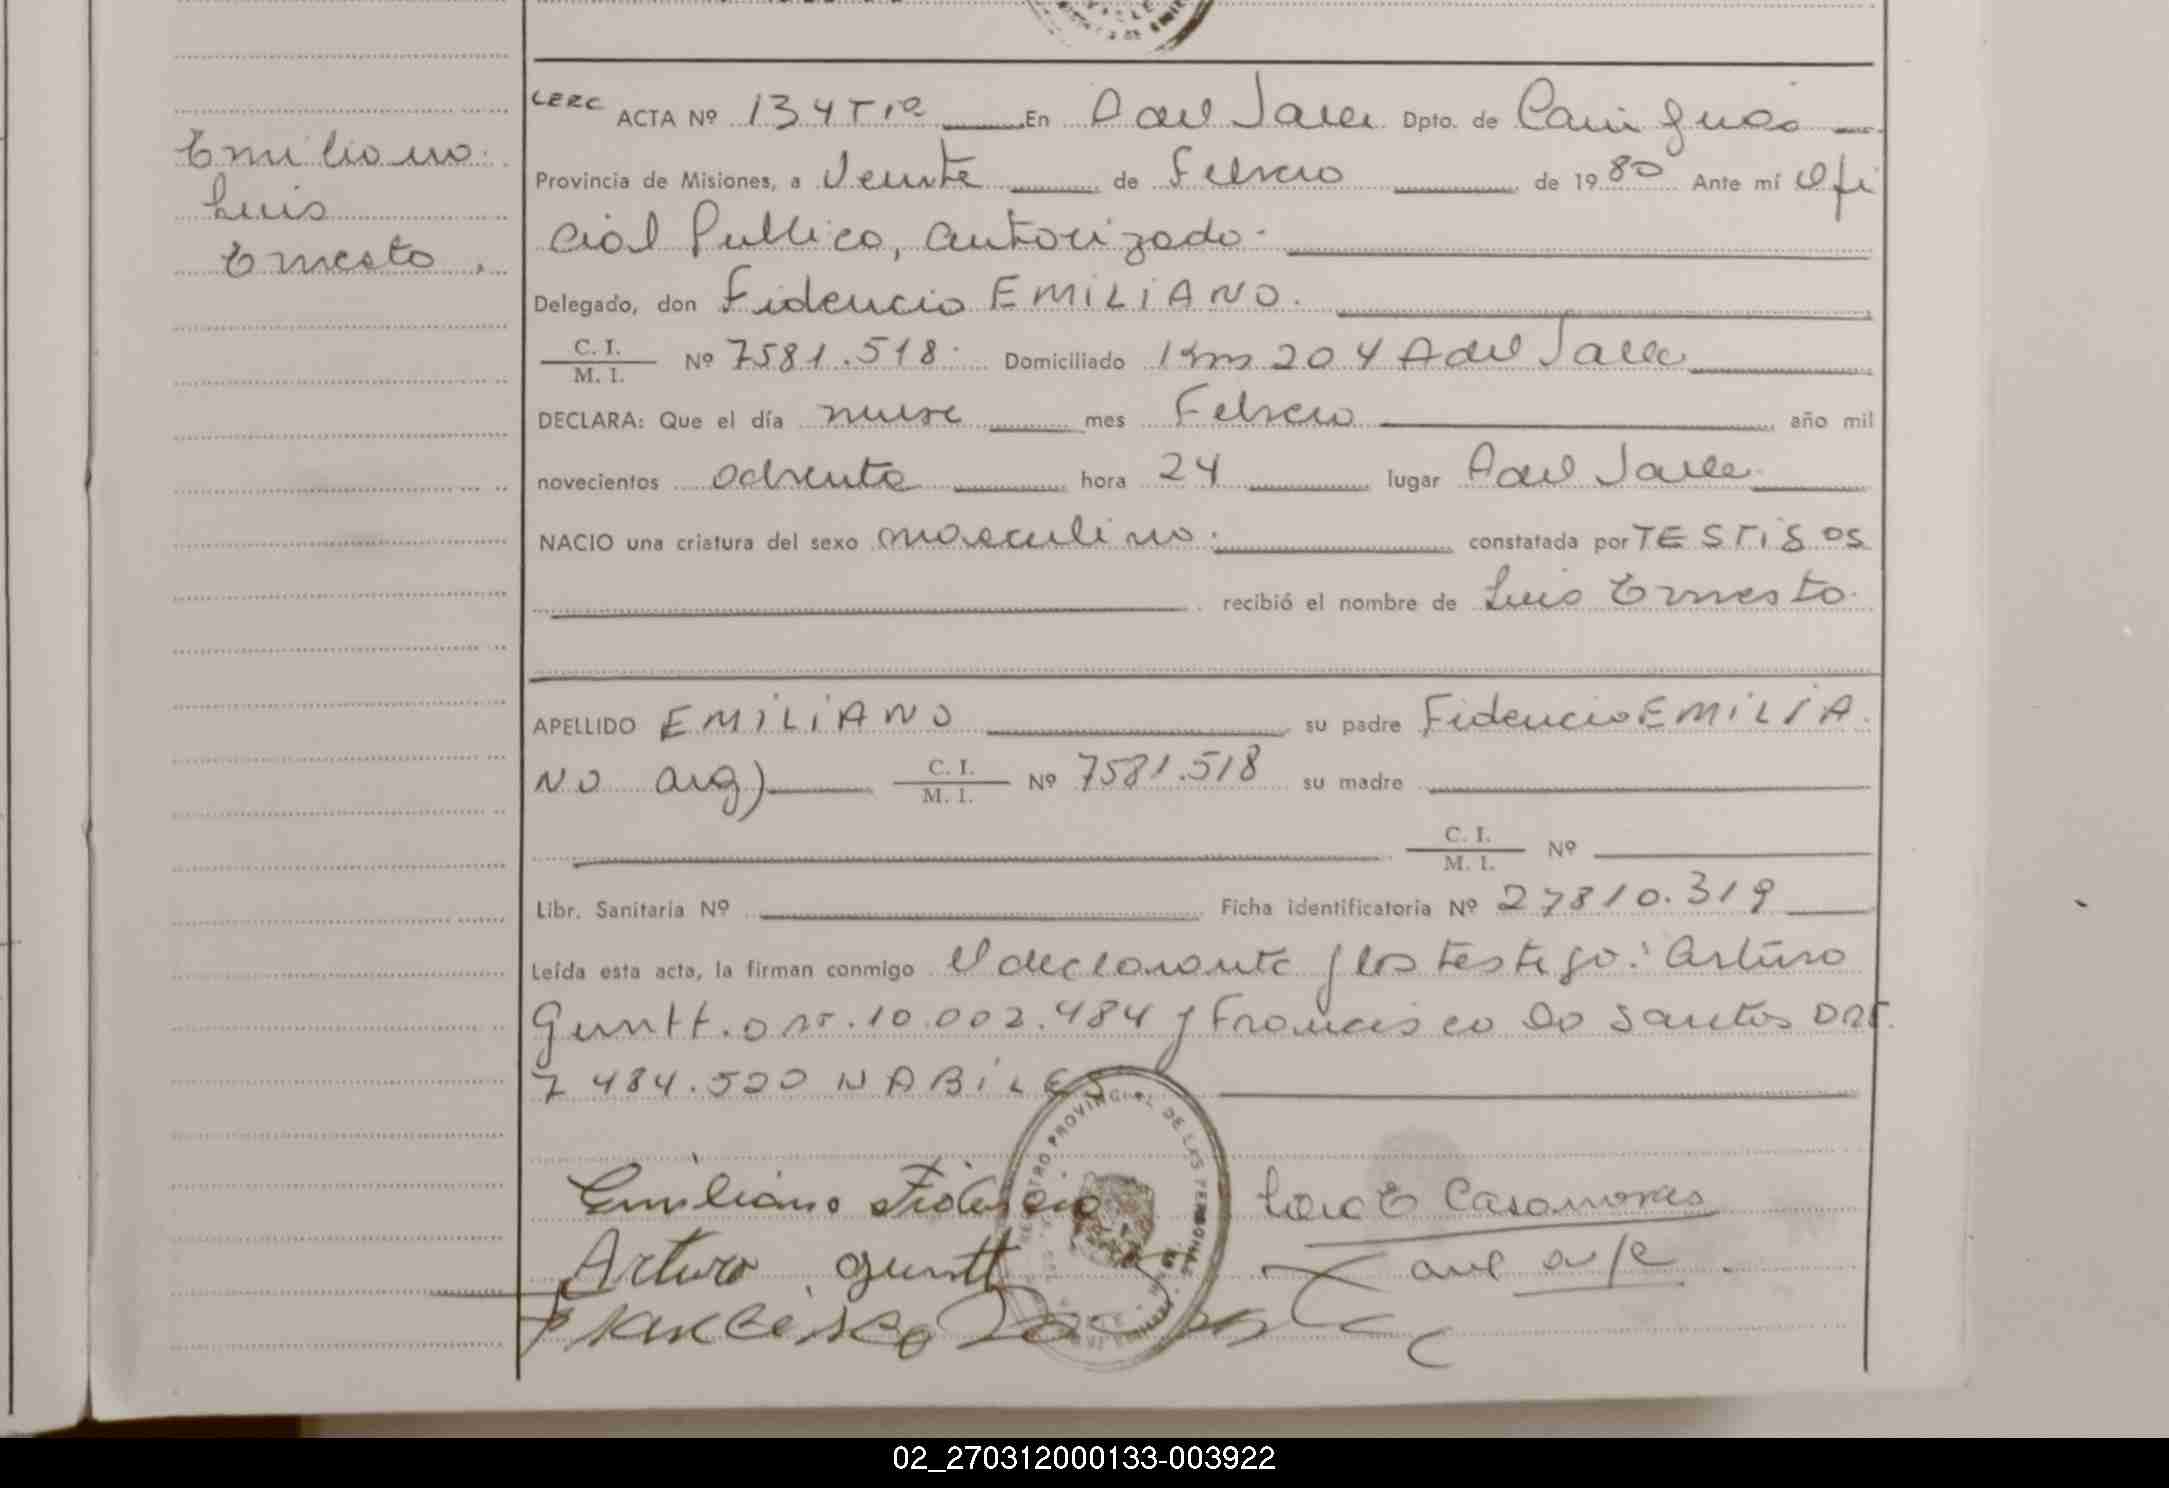 Emiliano
Luis
Ernesto
LERC ACTA Nº 134 Tº En A del Valle Dpto. de Cainguás
Provincia de Misiones, a Veinte de Febrero de 1980 Ante mí Ofi
cial Publico, autorizado
Delegado, don Fidencio EMILIANO.
C. I. / M. I. Nº 7581.518 Domiciliado Km 204 A del Valle
DECLARA: Que el día nueve mes Febrero año mil
novecientos ochenta hora 24 lugar A del Valle
NACIO una criatura del sexo masculino. constatada por TESTIGOS
recibió el nombre de Luis Ernesto
APELLIDO EMILIANO su padre Fidencio EMILIA
NO arg) C. I. / M. I. Nº 7581.518 su madre
C. I. / M. I. Nº
Libr. Sanitaria Nº Ficha identificatoria Nº 27810.319
Leída esta acta, la firman conmigo el declarante y los testigo: Arturo
Guntt. 10.002.484 y Francisco Do Santos DNI.
7484.520 HABILES
REGISTRO PROVINCIAL DE LAS PERSONAS
Emiliano Fidencio
Arturo guntt
Francisco
E Casanovas
02_270312000133-003922